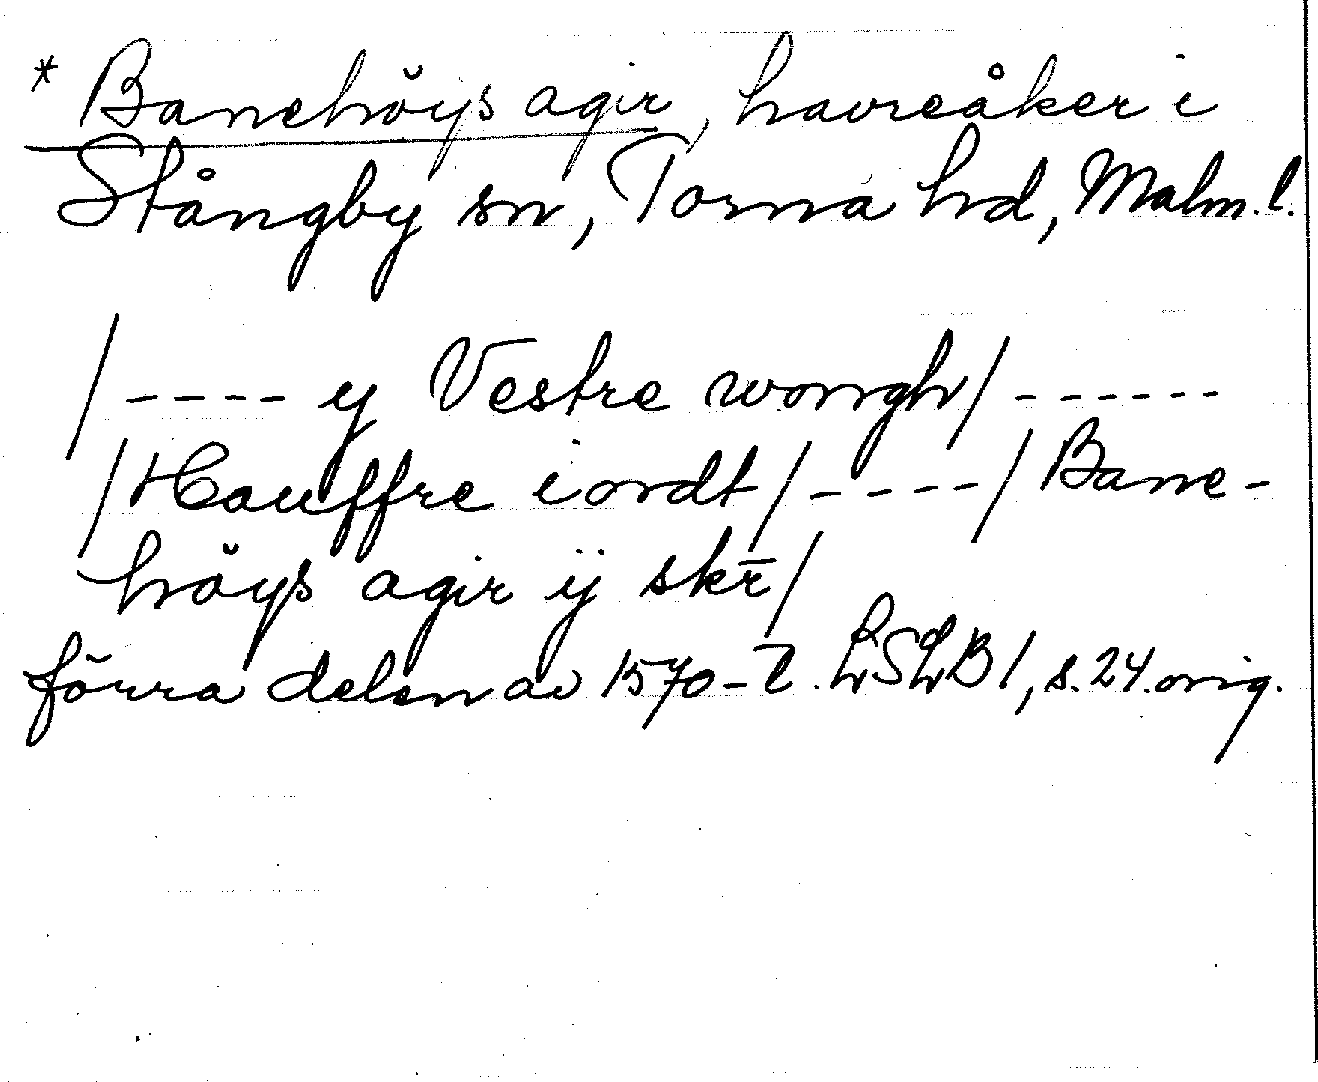 * Banehöys agir, havreåker i
Stångby sn, Torna hd, Malm. l.
/ ---- y Vestre wongh / ------
/ Hauffre iordt / ---- / Bane-
höys agir ij skr̄ /
förra delen av 1570-t. LSLB 1, s. 24. orig.